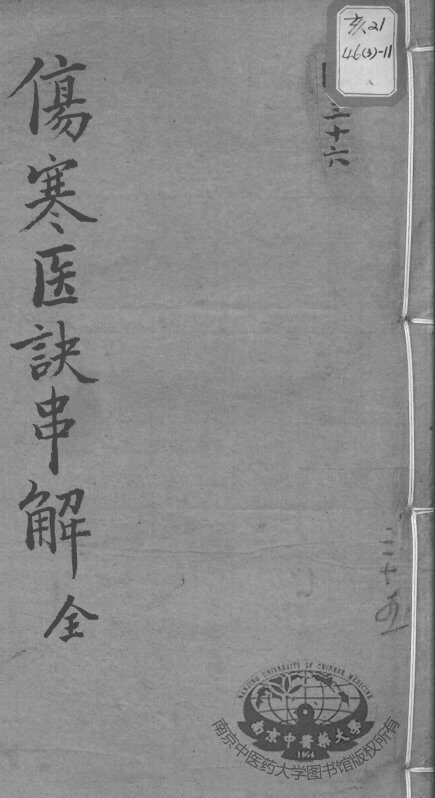 亥21
46(3)-11
三十六
傷寒医訣串解
全
三十五
NANJING UNIVERSITY OF CHINESE MEDICINE
南京中醫藥大學
1954
南京中医药大学图书馆版权所有